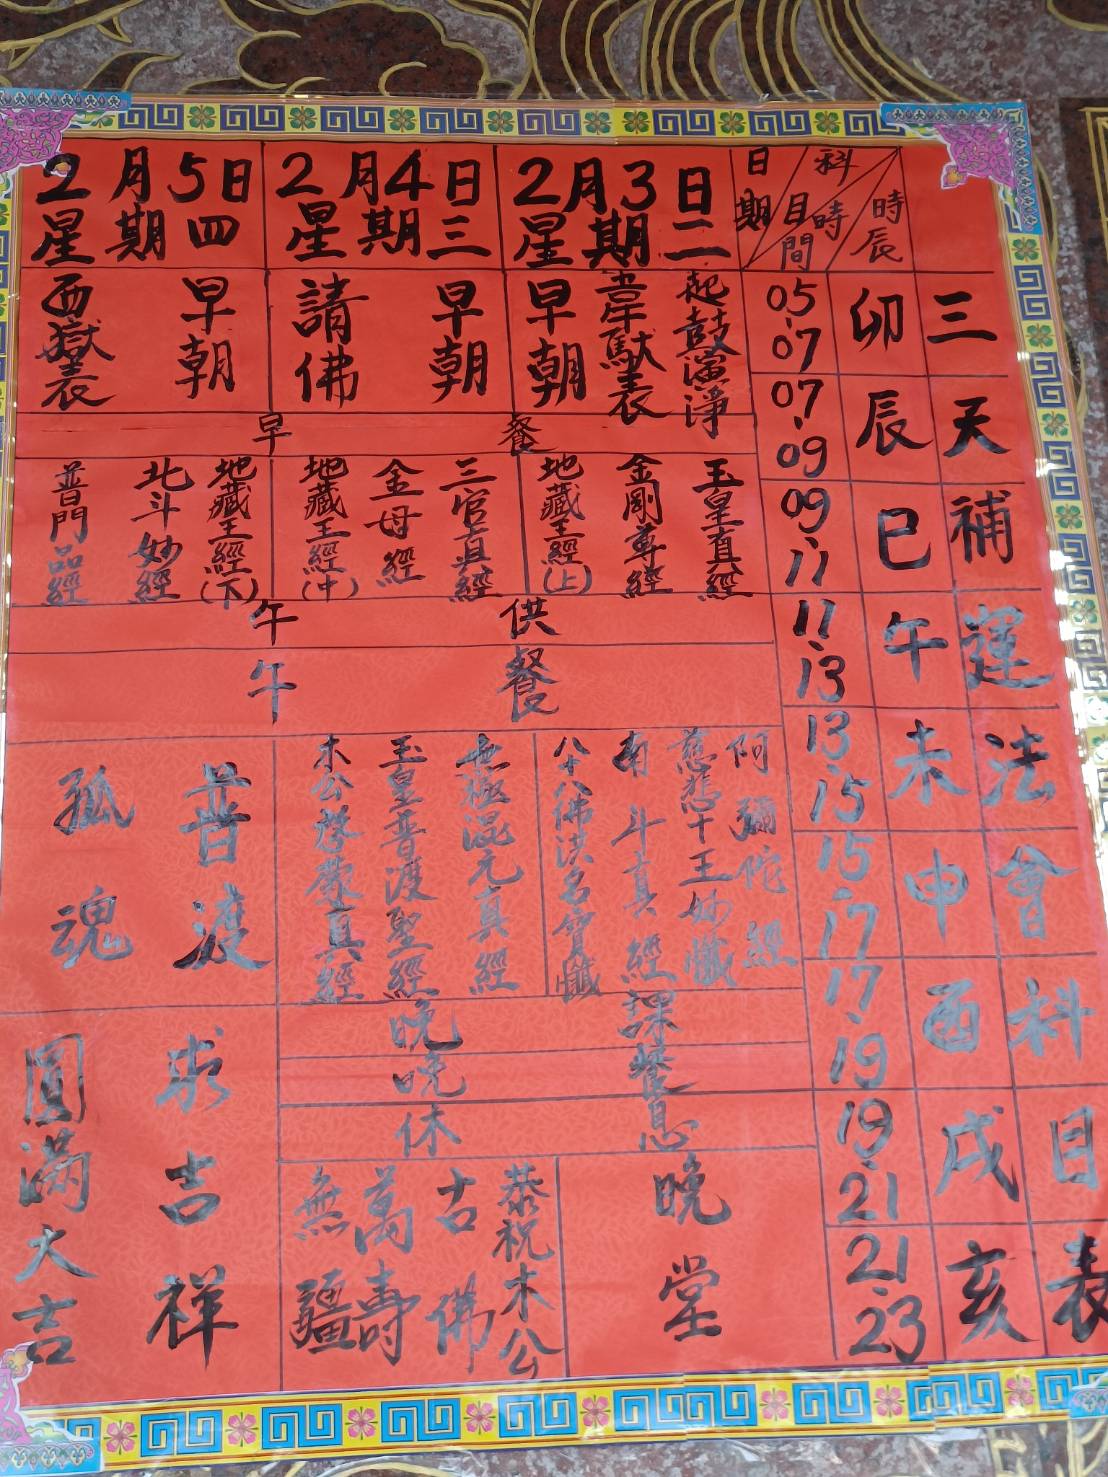 三天補運法會科目表
時辰
科目
時間
日期
卯
辰
巳
午
未
申
酉
戌
亥
05-07
07-09
09-11
11-13
13-15
15-17
17-19
19-21
21-23
2月3日
星期二
起鼓演淨
韋馱表
早朝
2月4日
星期三
早朝
請佛
2月5日
星期四
早朝
西嶽表
早餐
玉皇真經
金剛尊經
地藏王經(上)
三官真經
金母經
地藏王經(中)
地藏王經(下)
北斗妙經
普門品經
午供
午餐
阿彌陀經
慈悲十王妙懺
南斗真經
八十八佛洪名寶懺
無極混元真經
玉皇普渡聖經
木公啓蒙真經
普渡
孤魂
晚課
晚餐
休息
晚堂
恭祝木公
古佛
萬壽
無疆
求吉祥
圓滿大吉